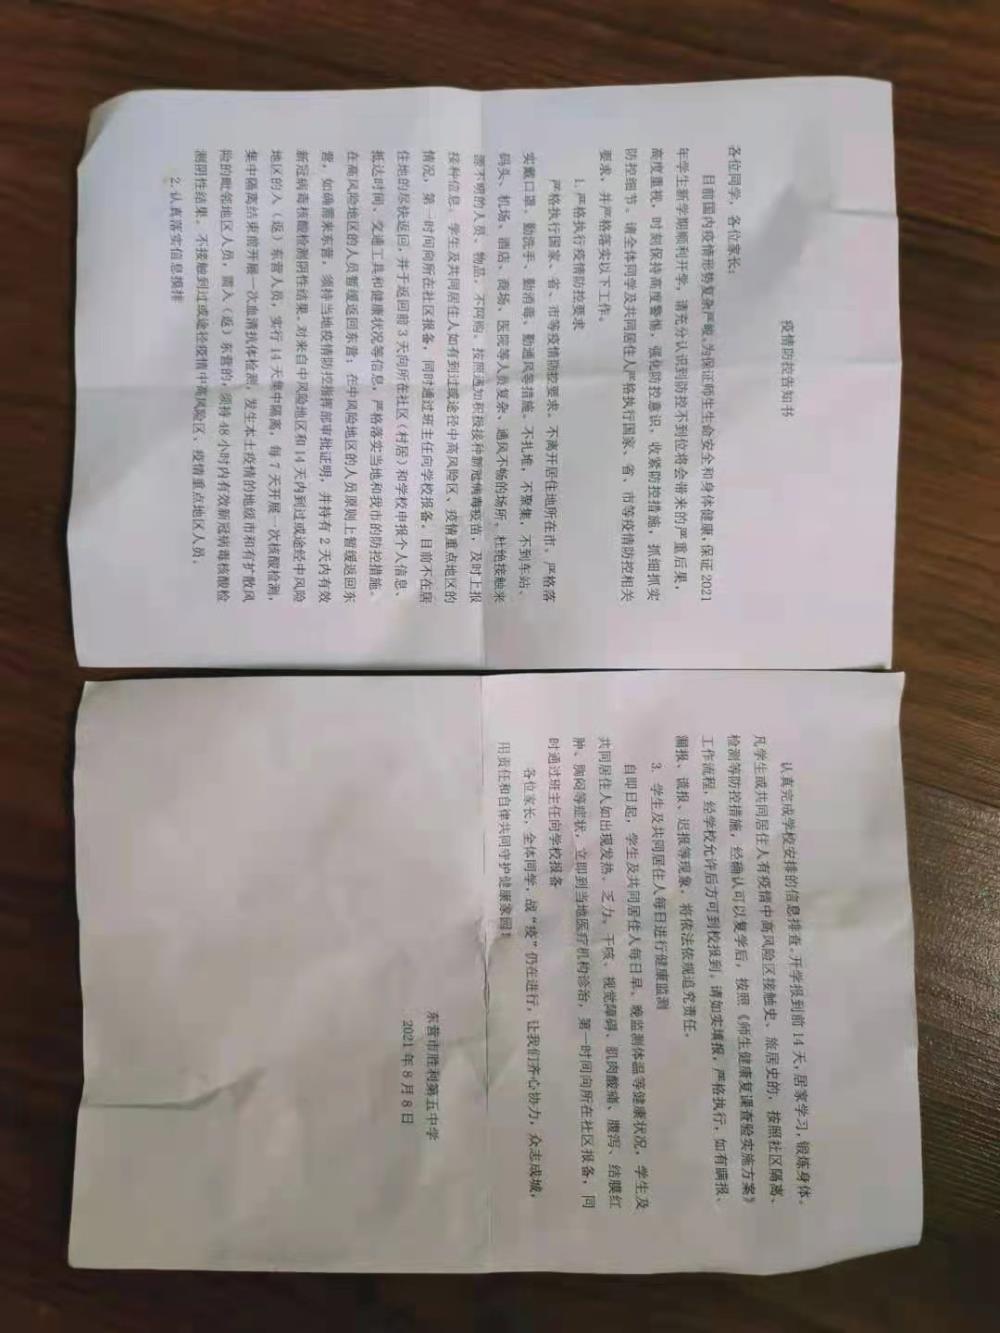 疫情防控告知书
各位同学，各位家长：
目前国内疫情形势复杂严峻，为保证师生生命安全和身体健康，保证2021
年学生新学期顺利开学，请充分认识到防控不到位将会带来的严重后果，
高度重视，时刻保持高度警惕，强化防控意识，收紧防控措施，抓细抓实
防控细节。请全体同学及共同居住人严格执行国家、省、市等疫情防控相关
要求，并严格落实以下工作。
1. 严格执行疫情防控要求
严格执行国家、省、市等疫情防控要求，不离开居住地所在市，严格落
实戴口罩、勤洗手、勤消毒、勤通风等措施，不扎堆，不聚集，不到车站、
码头、机场、酒店、商场、医院等人员复杂、通风不畅的场所，杜绝接触来
源不明的人员、物品，不网购。按照通知积极接种新冠病毒疫苗，及时上报
接种信息。学生及共同居住人如有到过或途径中高风险区、疫情重点地区的
情况，第一时间向所在社区报备，同时通过班主任向学校报备，目前不在居
住地的尽快返回，并于返回前3天向所在社区（村居）和学校申报个人信息、
抵达时间、交通工具和健康状况等信息，严格落实当地和我市的防控措施。
在高风险地区的人员暂缓返回东营；在中风险地区的人员原则上暂缓返回东
营，如确需来东营，须持当地疫情防控指挥部审批证明，并持有2天内有效
新冠病毒核酸检测阴性结果。对来自中风险地区和14天内到过或途经中风险
地区的人（返）东营人员，实行14天集中隔离，每7天开展一次核酸检测，
集中隔离结束前开展一次血清抗体检测，发生本土疫情的地级市和有扩散风
险的毗邻地区人员，需入（返）东营的，须持48小时内有效新冠病毒核酸检
测阴性结果。不接触到过或途径疫情中高风险区、疫情重点地区人员。
2. 认真落实信息摸排
认真完成学校安排的信息排查。开学报到前14天，居家学习，锻炼身体。
凡学生或共同居住人有疫情中高风险区接触史、旅居史的，按照社区隔离、
检测等防控措施，经确认可以复学后，按照《师生健康复课查验实施方案》
工作流程，经学校允许后方可到校报到，请如实填报，严格执行，如有瞒报、
漏报、谎报、迟报等现象，将依法依规追究责任。
3. 学生及共同居住人每日进行健康监测
自即日起，学生及共同居住人每日早、晚监测体温等健康状况，学生及
共同居住人如出现发热、乏力、干咳、视觉障碍、肌肉酸痛、腹泻、结膜红
肿、胸闷等症状，立即到当地医疗机构诊治，第一时间向所在社区报备，同
时通过班主任向学校报备
各位家长，全体同学，战“疫”仍在进行，让我们齐心协力，众志成城，
用责任和自律共同守护健康家园！
东营市胜利第五中学
2021年8月8日